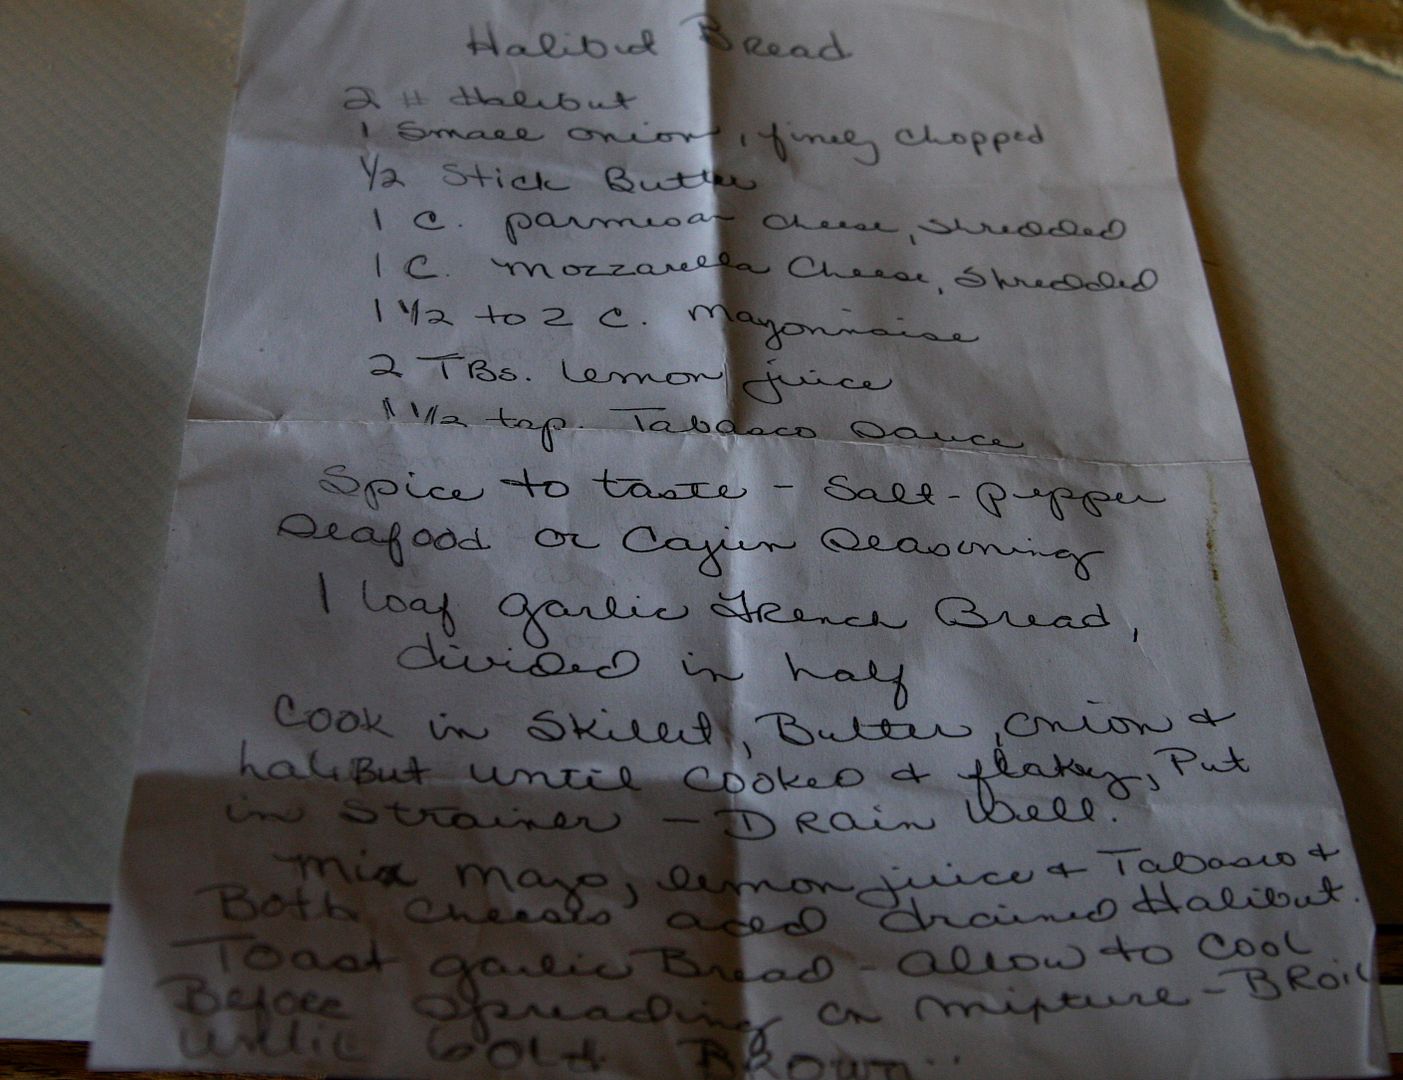 Halibut Bread
2 # Halibut
1 Small onion, finely chopped
1/2 Stick Butter
1 C. parmesan cheese, shredded
1 C. mozzarella Cheese, Shredded
1 1/2 to 2 C. mayonnaise
2 TBs. lemon juice
1 1/2 tsp. Tabasco Sauce
Spice to taste - Salt - pepper
Seafood or Cajun Seasoning
1 loaf garlic French Bread,
divided in half
Cook in Skillet, Butter, onion &
haliBut until cooked & flakey, Put
in Strainer - DRain Well.
Mix mayo, lemon juice & Tabasco &
Both cheeses add drained Halibut.
Toast garlic Bread - allow to cool
Before Spreading on mixture - BRoil
until Gold BRown..